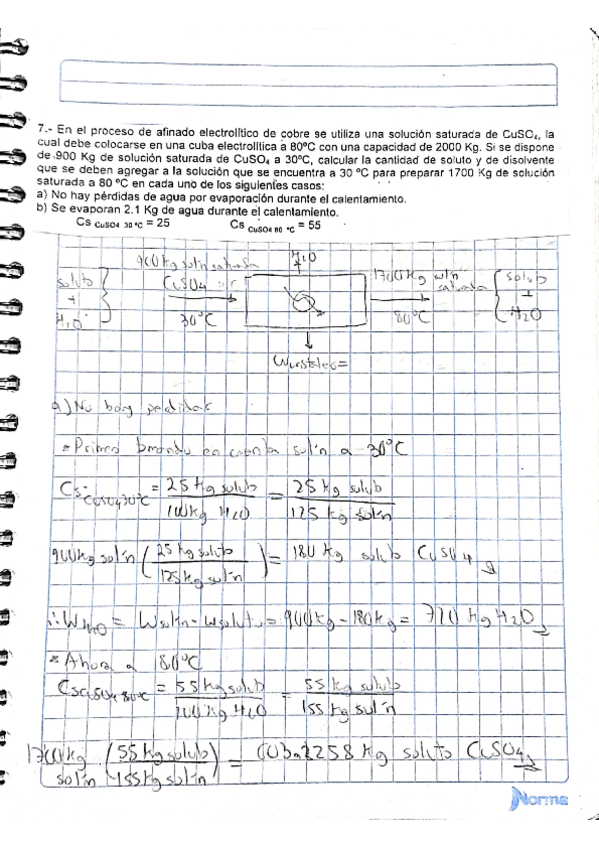 7.- En el proceso de afinado electrolítico de cobre se utiliza una solución saturada de CuSO₄, la
cual debe colocarse en una cuba electrolítica a 80ºC con una capacidad de 2000 Kg. Si se dispone
de 900 Kg de solución saturada de CuSO₄ a 30ºC, calcular la cantidad de soluto y de disolvente
que se deben agregar a la solución que se encuentra a 30 ºC para preparar 1700 Kg de solución
saturada a 80 ºC en cada uno de los siguientes casos:
a) No hay pérdidas de agua por evaporación durante el calentamiento.
b) Se evaporan 2.1 Kg de agua durante el calentamiento.
Cs CuSO4 30 ºC = 25 Cs CuSO4 80 ºC = 55
900 kg soln saturada
soluto + H₂O CuSO₄ 30ºC
1700 kg soln saturada 80ºC soluto + H₂O
a) No hay perdidas
* Primero tomando en cuenta sol'n a 30ºC
Cs CuSO4 30ºC = 25 kg soluto / 100 kg H₂O = 25 kg soluto / 125 kg sol'n
900 kg sol'n (25 kg soluto / 125 kg sol'n) = 180 kg soluto CuSO₄
∴ W H₂O = W sol'n - W soluto = 900 kg - 180 kg = 720 kg H₂O
* Ahora a 80ºC
Cs CuSO4 80ºC = 55 kg soluto / 100 kg H₂O = 55 kg soluto / 155 kg sol'n
1700 kg sol'n (55 kg soluto / 155 kg sol'n) = 603.2258 kg soluto CuSO₄
Norma